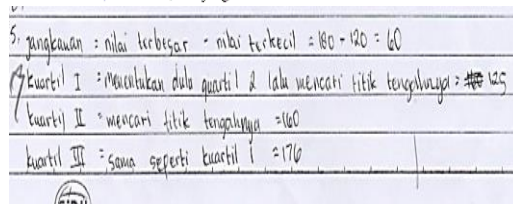 5. jangkauan = nilai terbesar - nilai terkecil = 180 - 120 = 60
kuartil I = menentukan dulu quartil 2 lalu mencari titik tengahnya = 125
kuartil II = mencari titik tengahnya = 160
kuartil III = sama seperti kuartil 1 = 176